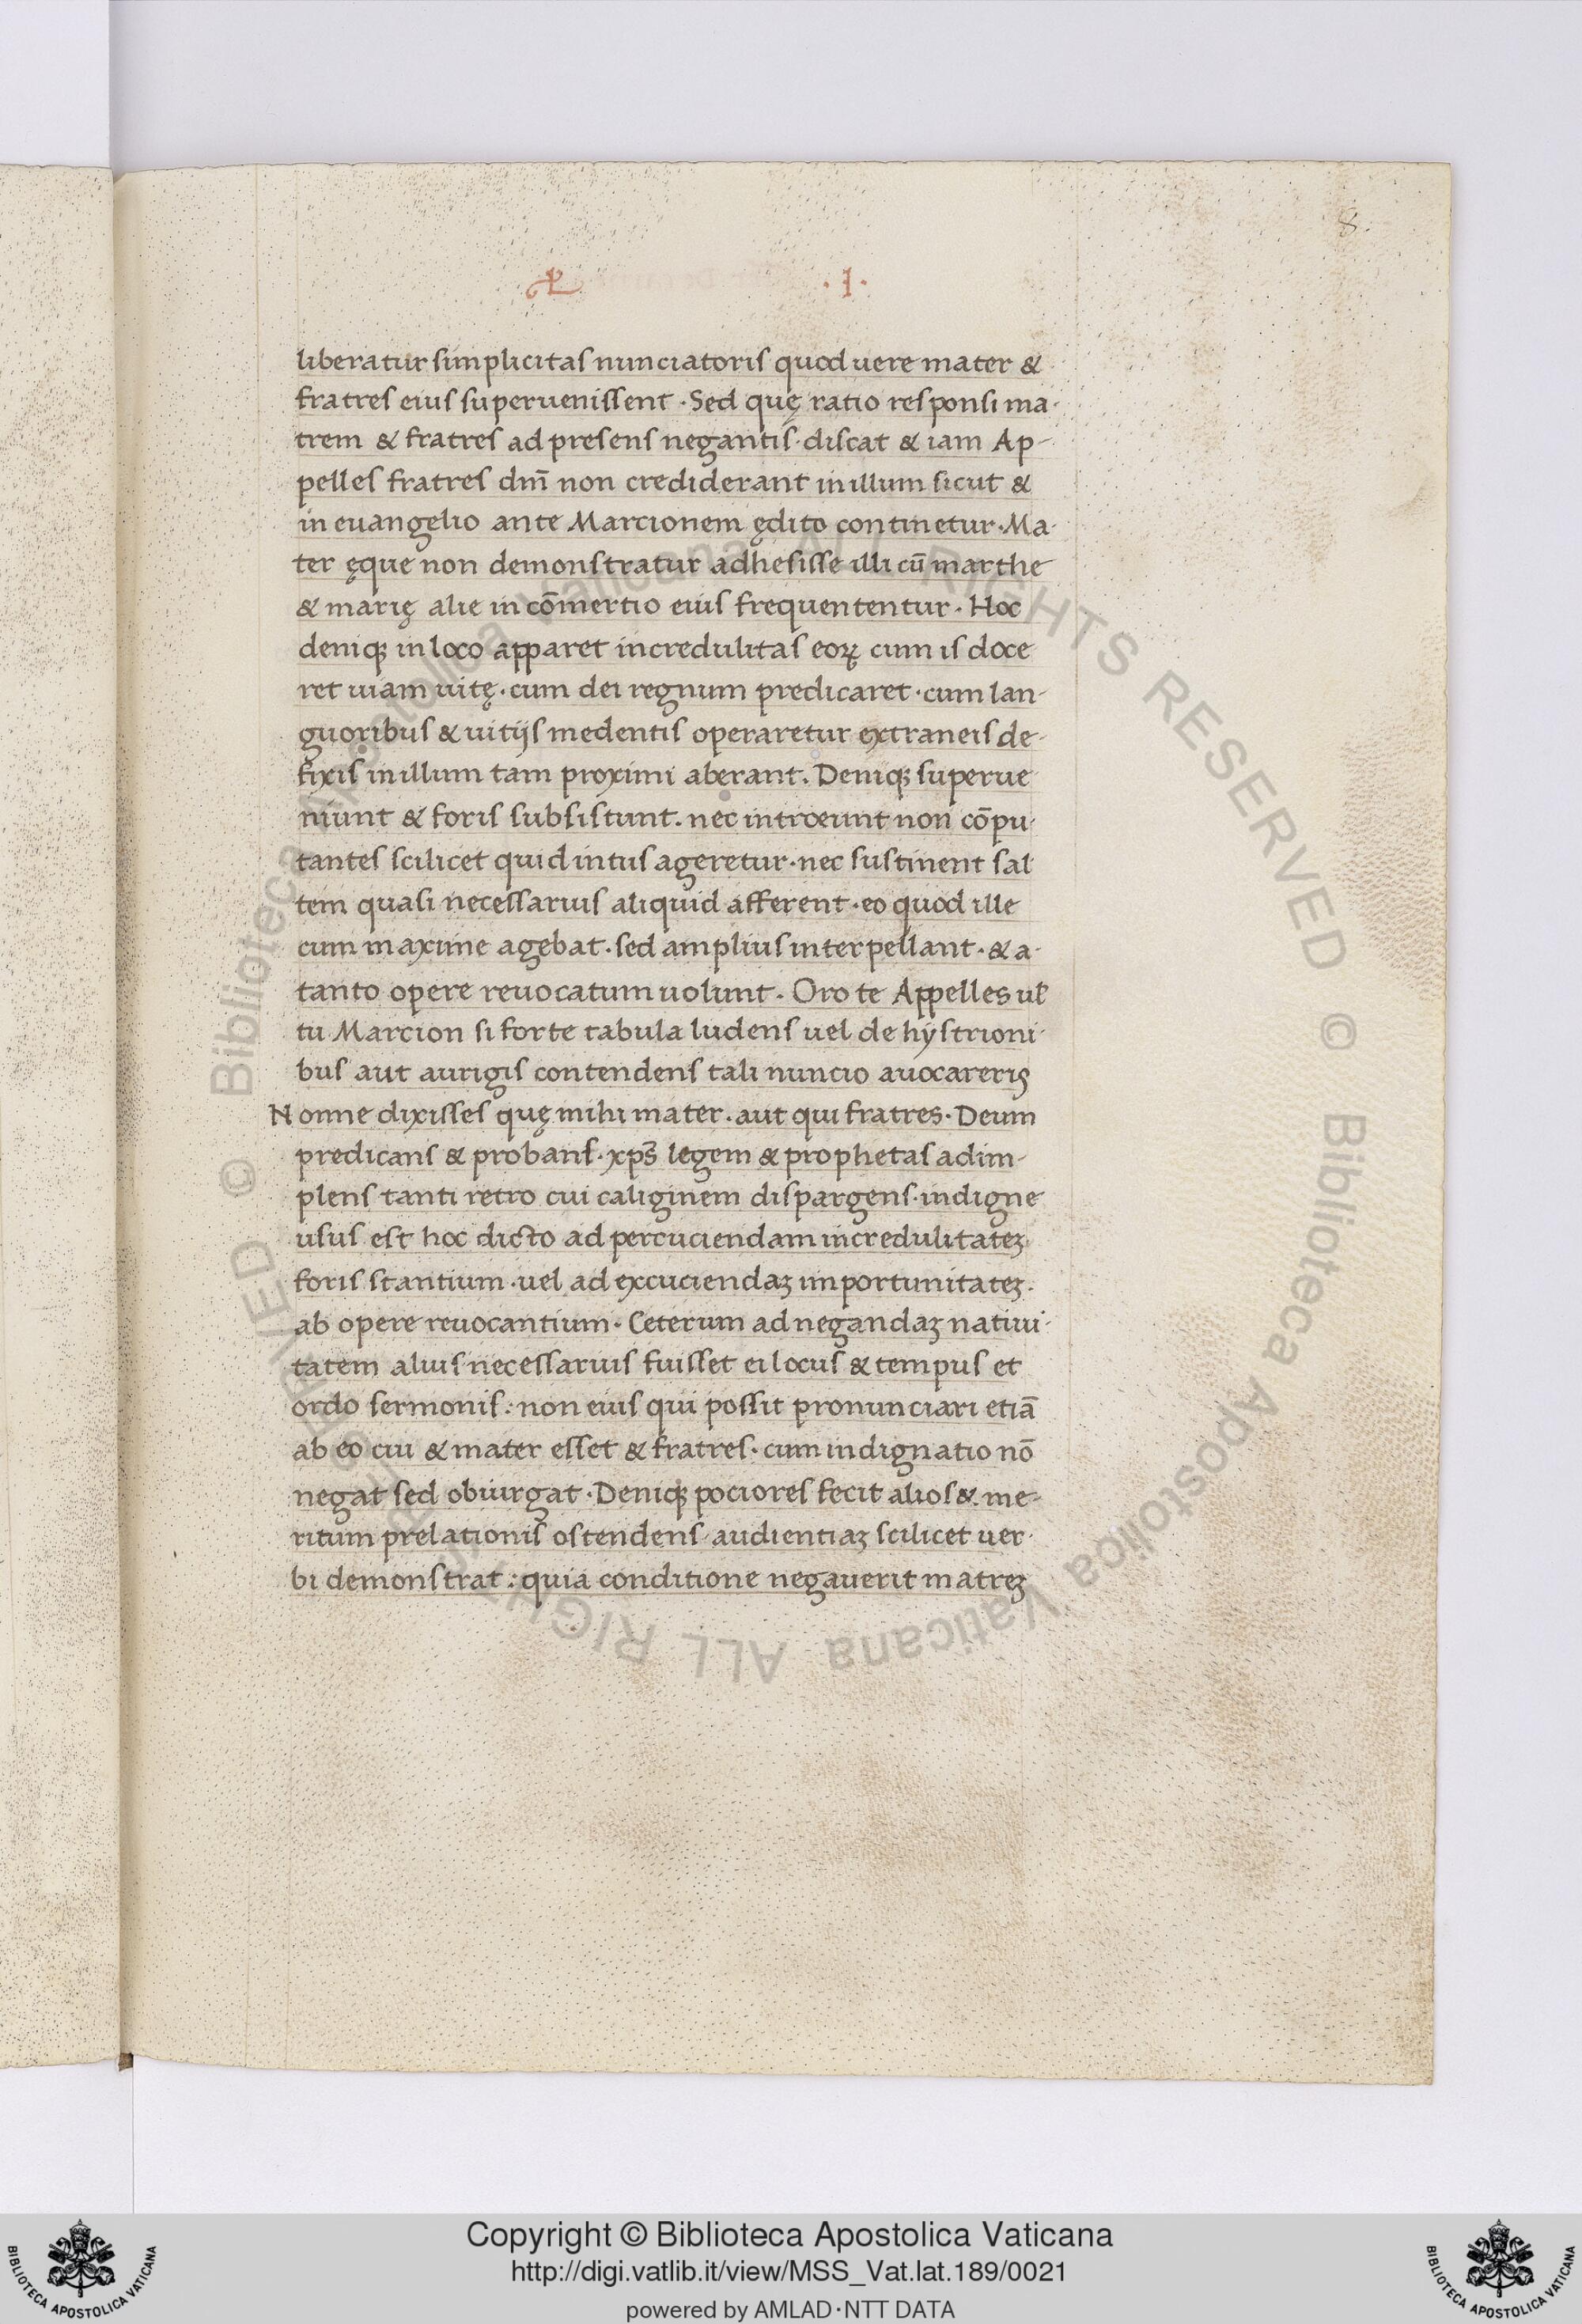 8
L · I ·
liberatur simplicitas nunciatoris quod uere mater &
fratres eius superuenissent · Sed quę ratio responsi ma-
trem & fratres ad presens negantis · discat & iam Ap-
pelles fratres dñi non crediderant in illum sicut &
in euangelio ante Marcionem ędito continetur · Ma-
ter ęque non demonstratur adhesisse illi cū marthe
& marię alie in cōmertio eius frequententur · Hoc
deniqꝫ in loco apparet incredulitas eoꝝ cum is doce
ret uiam uitę · cum dei regnum predicaret · cum lan-
guoribus & uitijs medentis operaretur extraneis de-
fixis in illum tam proximi aberant. Deniqꝫ superue
niunt & foris subsistunt. nec introeunt non cōpu-
tantes scilicet quid intus ageretur · nec sustinent sal
tem quasi necessarius aliquid afferent · eo quod ille
cum maxime agebat · sed amplius interpellant · & a-
tanto opere reuocatum uolunt. Oro te Appelles ul̄
tu Marcion si forte tabula ludens uel de hystrioni-
bus aut aurigis contendens tali nuncio auocareris
Nonne dixisses quę mihi mater. aut qui fratres · Deum
predicans & probans · xp̄s legem & prophetas adim-
plens tanti retro cui caliginem dispargens · indigne
usus est hoc dicto ad percuciendam incredulitateꝫ
foris stantium · uel ad excuciendaꝫ importunitateꝫ.
ab opere reuocantium · Ceterum ad negandaꝫ natiui-
tatem alius necessarius fuisset ei locus & tempus et
ordo sermonis : non eius qui possit pronunciari etiā
ab eo cui & mater esset & fratres · cum indignatio nō
negat sed obiurgat · Deniqꝫ pociores fecit alios & me-
ritum prelationis ostendens · audientiaꝫ scilicet uer-
bi demonstrat : quia conditione negauerit matreꝫ
© Biblioteca Apostolica Vaticana ALL RIGHTS RESERVED © Biblioteca Apostolica Vaticana ALL RIGHTS RESERVED
BIBLIOTECA APOSTOLICA VATICANA
Copyright © Biblioteca Apostolica Vaticana
http://digi.vatlib.it/view/MSS_Vat.lat.189/0021
powered by AMLAD·NTT DATA
BIBLIOTECA APOSTOLICA VATICANA